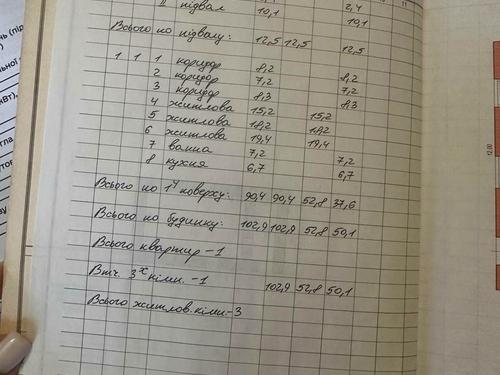 II підвал 10,1 2,4
10,1
Всього по підвалу: 12,5 12,5 12,5
1 1 1 коридор 8,2 8,2
2 коридор 7,2 7,2
3 коридор 8,3 8,3
4 житлова 15,2 15,2
5 житлова 18,2 18,2
6 житлова 19,4 19,4
7 ванна 7,2 7,2
8 кухня 6,7 6,7
Всього по 1у поверху: 90,4 90,4 52,8 37,6
Всього по будинку: 102,9 102,9 52,8 50,1
Всього квартир - 1
В тч. 3х кімн. - 1 102,9 52,8 50,1
Всього житлов. кімн - 3
12,00